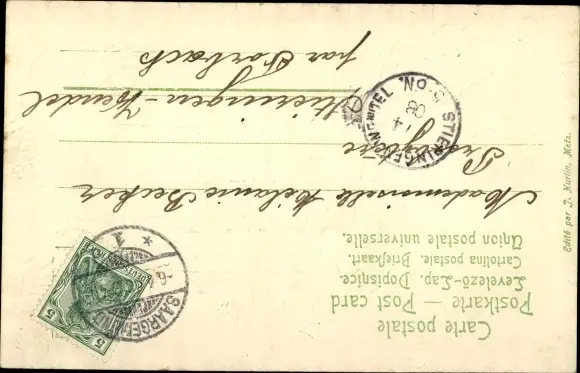 Carte postale
Postkarte — Post card
Levelező-Lap. Dopisnice.
Cartolina postale. Briefkaart.
Union postale universelle.
DEUTSCHES REICH
5 5
SAARGEMÜND
* 1
Mademoiselle Mélanie Becker
Stieringen-Wendel
par Forbach
STIERINGEN-WENDEL
Edité par J. Kurtin, Metz.